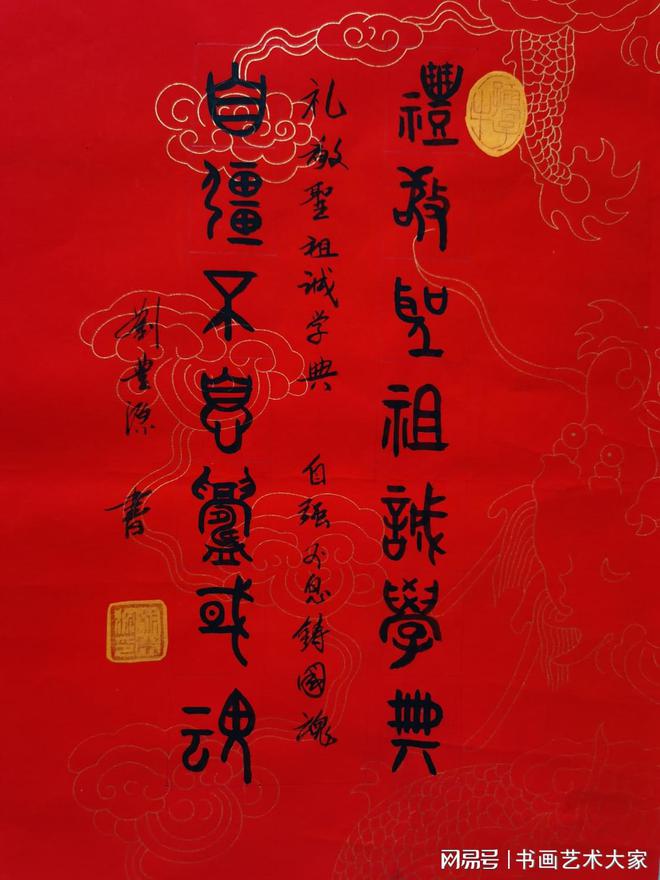 禮敬聖祖誠學典
礼敬聖祖誠学典 自强不息鋳國魂
自彊不息鑄或魂
劉豊源 書
网易号 | 书画艺术大家